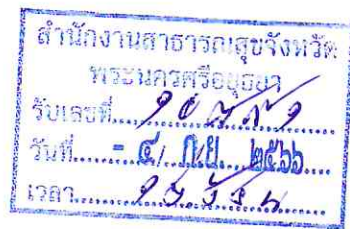 สำนักงานสาธารณสุขจังหวัด
พระนครศรีอยุธยา
รับเลขที่
วันที่ - ๔ ก.ย. ๒๕๖๖
เวลา